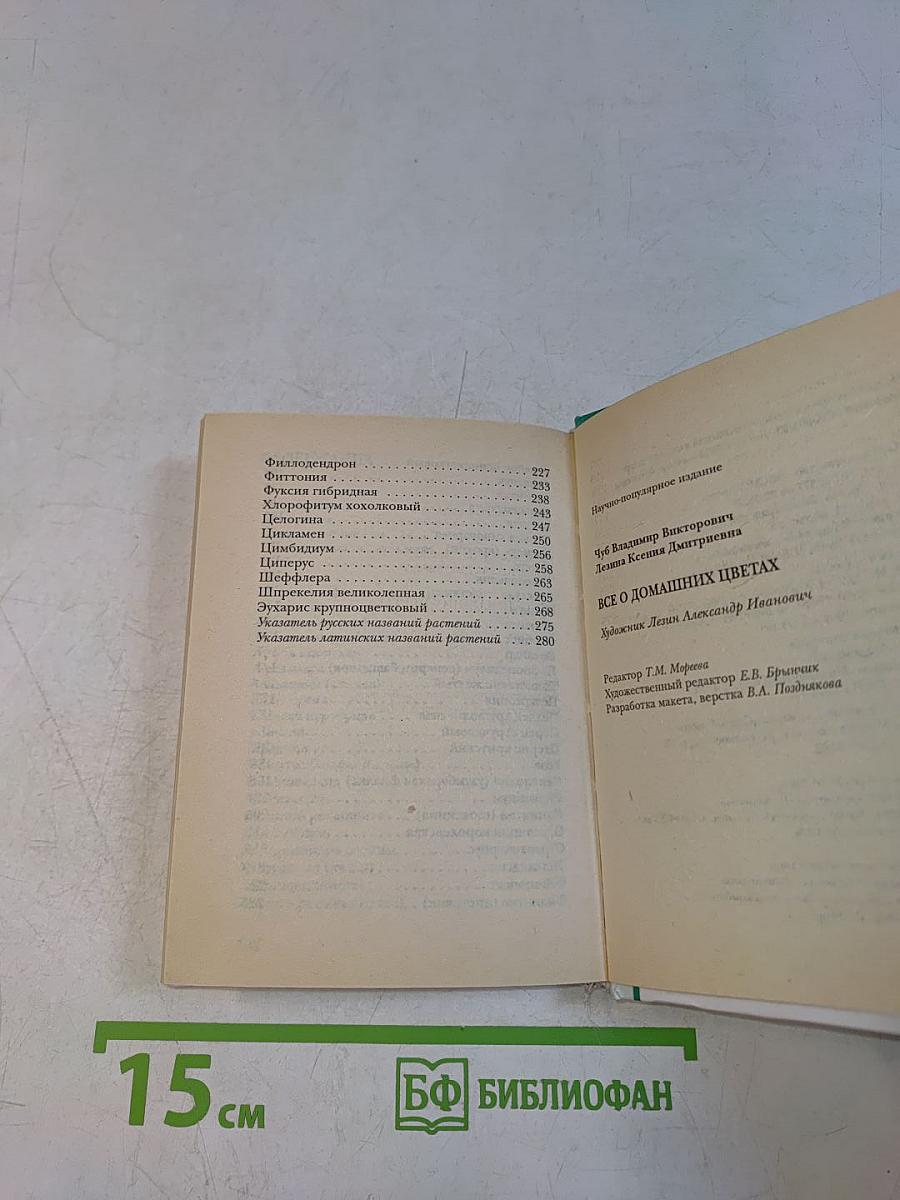 Филлодендрон . . . . . . . . . . . . . . . . . . . . . 227
Фиттония . . . . . . . . . . . . . . . . . . . . . . . . . 233
Фуксия гибридная . . . . . . . . . . . . . . . . . . 238
Хлорофитум хохолковый . . . . . . . . . . . . . 243
Целогина . . . . . . . . . . . . . . . . . . . . . . . . . 247
Цикламен . . . . . . . . . . . . . . . . . . . . . . . . . 250
Цимбидиум . . . . . . . . . . . . . . . . . . . . . . . . 256
Циперус . . . . . . . . . . . . . . . . . . . . . . . . . . 258
Шеффлера . . . . . . . . . . . . . . . . . . . . . . . . 263
Шпрекелия великолепная . . . . . . . . . . . . 265
Эухарис крупноцветковый . . . . . . . . . . . . 268
Указатель русских названий растений . . . . . . 275
Указатель латинских названий растений . . . 280
Научно-популярное издание
Чуб Владимир Викторович
Лезина Ксения Дмитриевна
ВСЕ О ДОМАШНИХ ЦВЕТАХ
Художник Лезин Александр Иванович
Редактор Т.М. Мореева
Художественный редактор Е.В. Брынчик
Разработка макета, верстка В.А. Позднякова
15 см
БФ БИБЛИОФАН